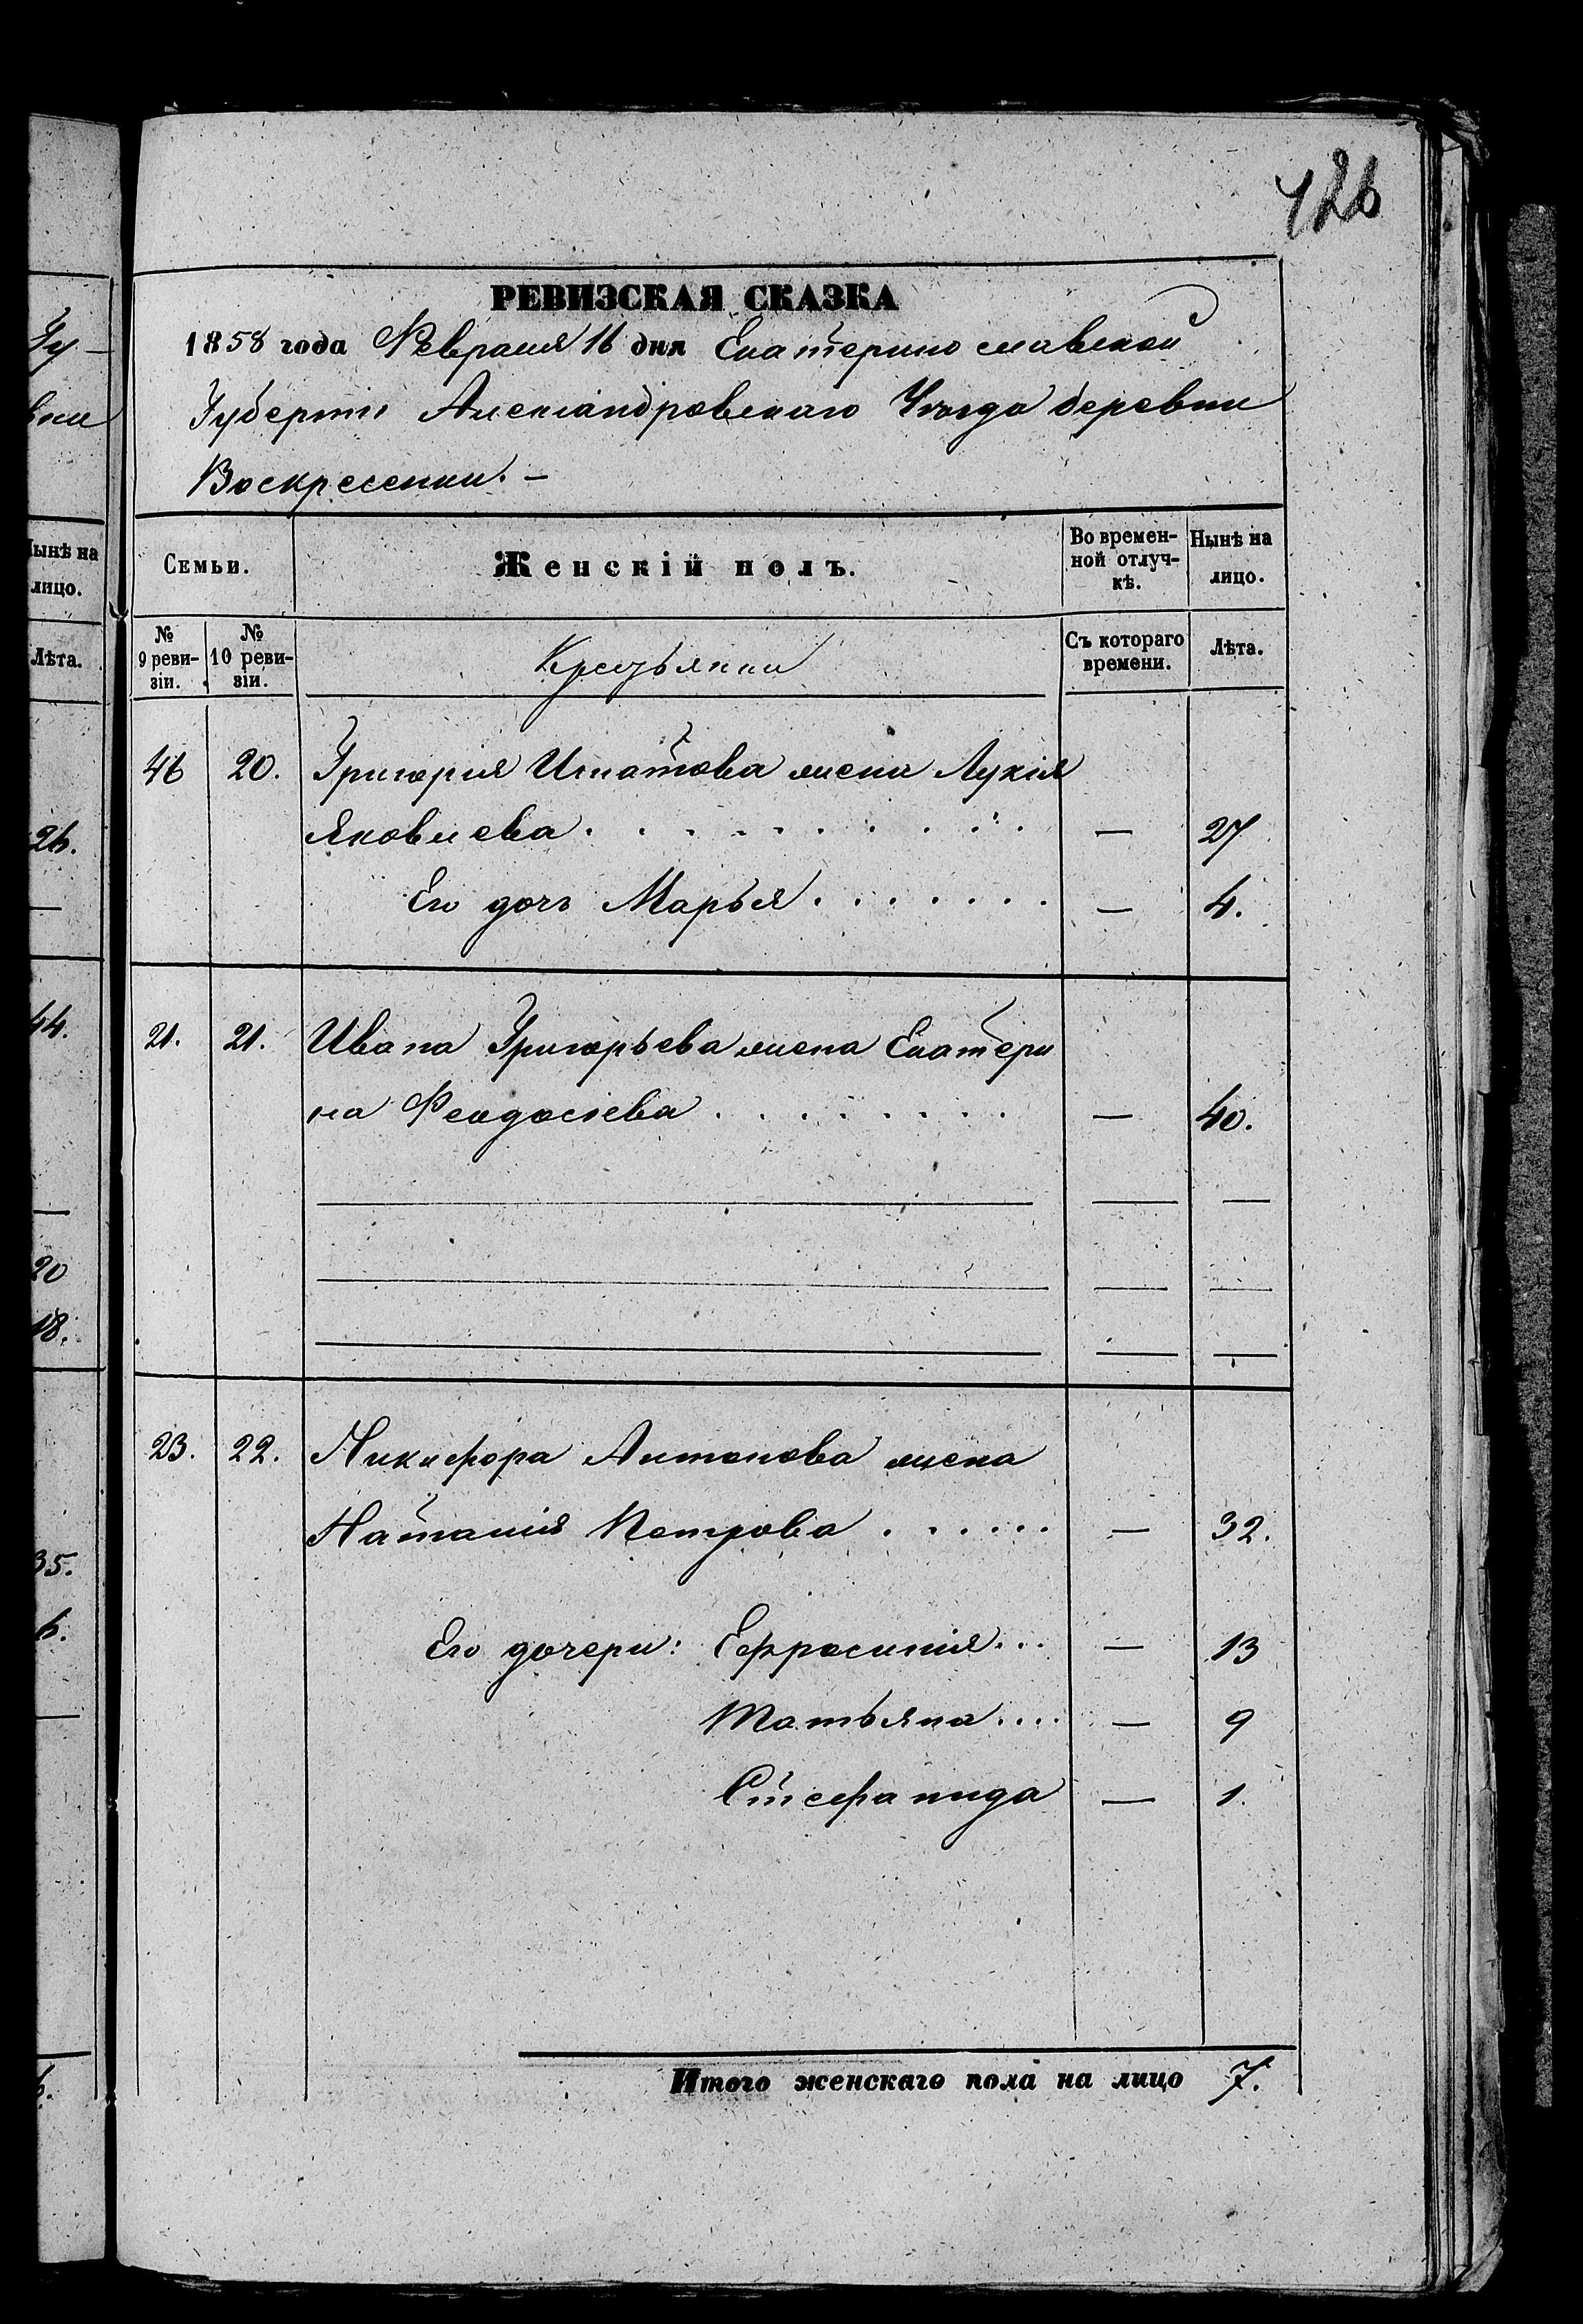 426
РЕВИЗСКАЯ СКАЗКА
1858 года Февраля 16 дня Екатеринославской
Губерніи Александровскаго Уѣзда деревни
Воскресенки. –
Семьи.
Женскій полъ.
Во времен-
ной отлуч-
кѣ.
Нынѣ на
лицо.
№
9 реви-
зіи.
№
10 реви-
зіи.
Крестьянки
Съ котораго
времени.
Лѣта.
46 20. Григорія Игнатова жена Лукія
Яковлева . . . . . . . . . . . — 27
Его дочь Марья . . . . . . . — 4.
21. 21. Ивана Григорьева жена Екатери
на Феодосіева . . . . . . . . — 40.
23. 22. Никифора Антонова жена
Наталія Петрова . . . . . . — 32.
Его дочери: Ефросинія . . . — 13
Татьяна . . . . — 9
Стефанида — 1.
Итого женскаго пола на лицо 7.
Гу–
вни
Нынѣ на
лицо.
Лѣта.
26.
44.
20
18.
35.
6.
6.